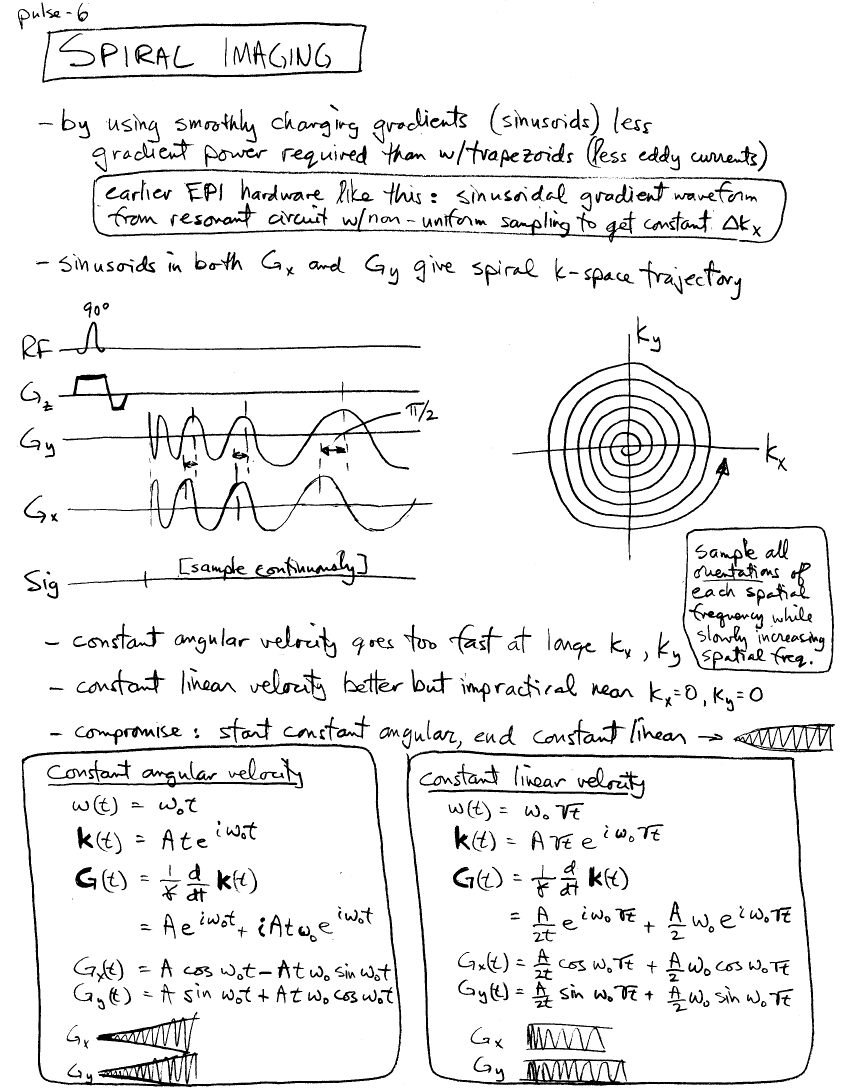 pulse-6
SPIRAL IMAGING
- by using smoothly changing gradients (sinusoids) less
gradient power required than w/trapezoids (less eddy currents)
earlier EPI hardware like this: sinusoidal gradient waveform
from resonant circuit w/non-uniform sampling to get constant Δkₓ
- sinusoids in both Gₓ and Gy give spiral k-space trajectory
90°
RF
G_z
π/2
Gy
Gₓ
Sig
[sample continuously]
ky
kₓ
sample all
orientations of
each spatial
frequency while
slowly increasing
spatial freq.
- constant angular velocity goes too fast at large kₓ, ky
- constant linear velocity better but impractical near kₓ=0, ky=0
- compromise: start constant angular, end constant linear →
Constant angular velocity
ω(t) = ω₀t
k(t) = A t e^{iω₀t}
G(t) = 1/γ d/dt k(t)
= A e^{iω₀t} + iAtω₀e^{iω₀t}
Gₓ(t) = A cos ω₀t − Atω₀ sin ω₀t
Gy(t) = A sin ω₀t + Atω₀ cos ω₀t
Gₓ
Gy
constant linear velocity
ω(t) = ω₀√t
k(t) = A√t e^{iω₀√t}
G(t) = 1/γ d/dt k(t)
= A/2t e^{iω₀√t} + A/2 ω₀ e^{iω₀√t}
Gₓ(t) = A/2t cos ω₀√t + A/2 ω₀ cos ω₀√t
Gy(t) = A/2t sin ω₀√t + A/2 ω₀ sin ω₀√t
Gₓ
Gy